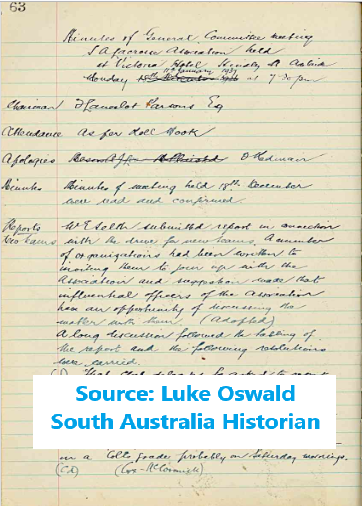 63
Minutes of General Committee meeting
S A Lacrosse Association held
at Victoria Hotel Hindley St Adelaide
January 1937
Monday at 7-30 pm
Chairman Lancelot Parsons Esq
Attendance As for Roll Book
Apologies
Minutes Minutes of meeting held 18th December
were read and confirmed.
Reports W E submitted report in connection
New Teams with the drive for new teams. A number
of organizations had been written to
inviting them to join up with the
Association and suggestion made that
influential officers of the Association
have an opportunity of discussing the
matter with them (Adopted)
A long discussion followed the tabling of
the report and the following resolutions
were carried
Source: Luke Oswald
South Australia Historian
in a Colts grade probably on Saturday mornings.
(Cd) (Cox - McCormick)